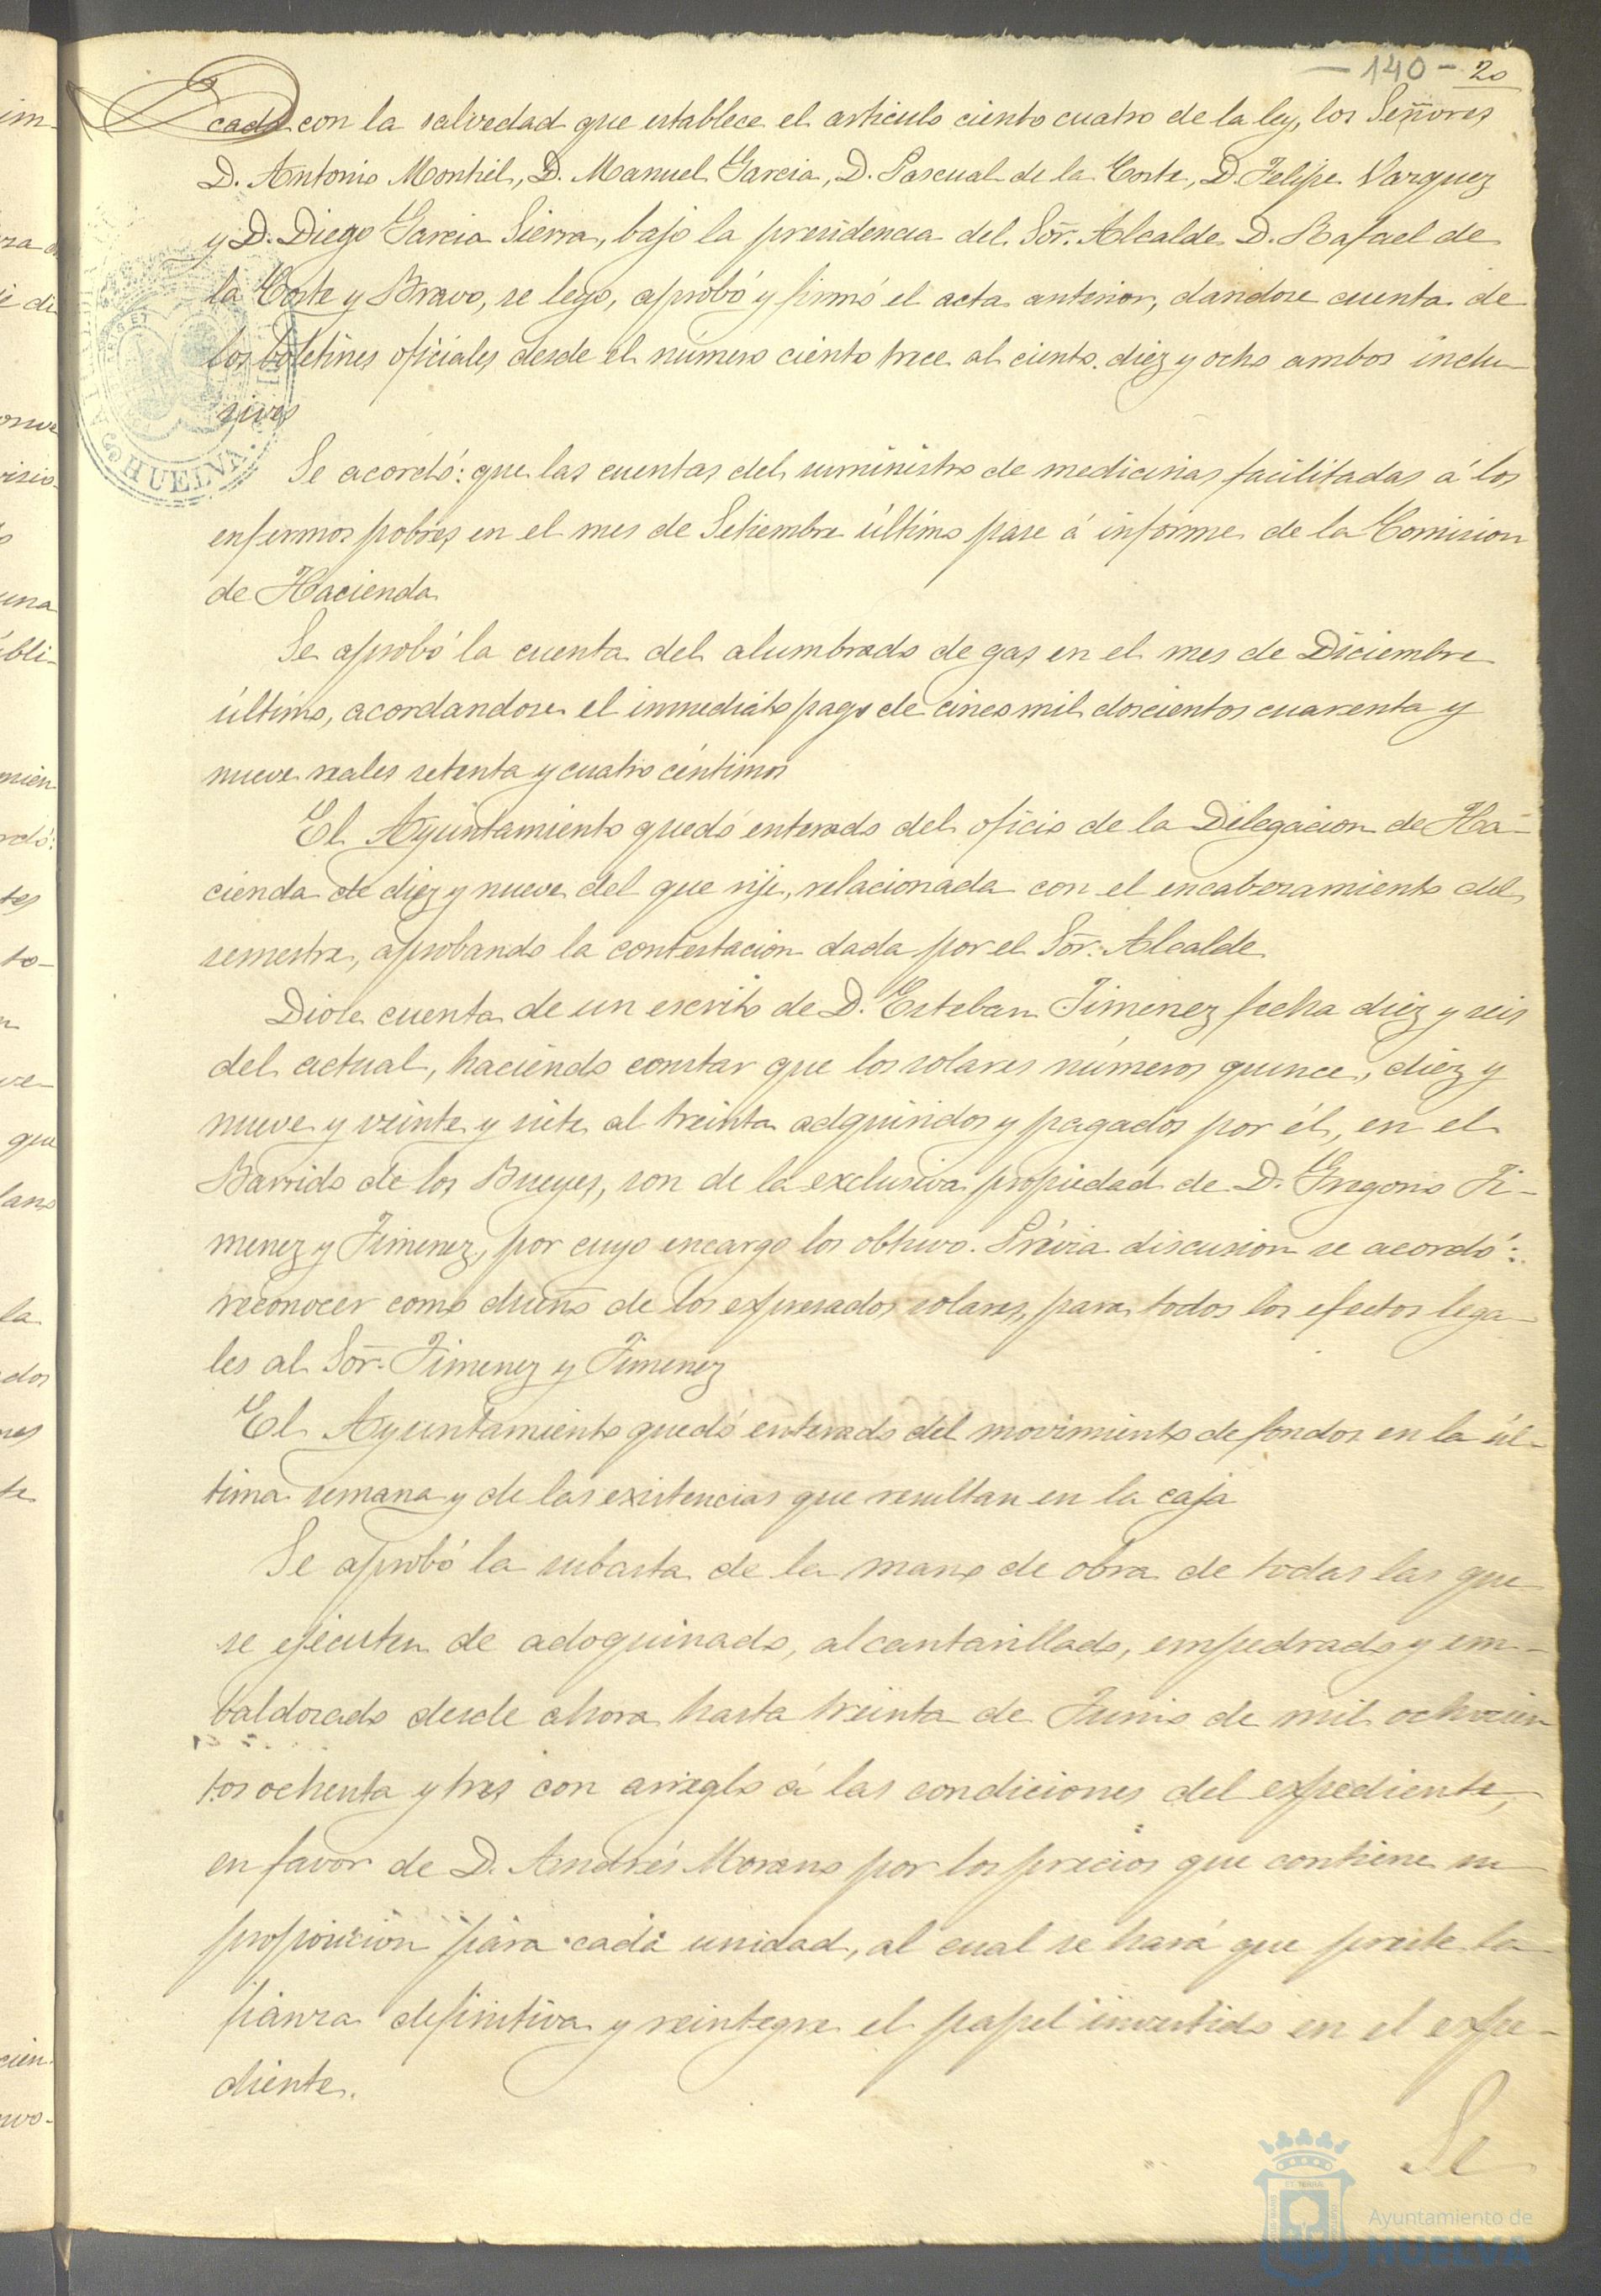 - 140 - 20
cada con la salvedad que establece el articulo ciento cuatro de la ley, los Señores
D. Antonio Montiel, D. Manuel Garcia, D. Pascual de la Corte, D. Felipe Vazquez
y D. Diego Garcia Sierra, bajo la presidencia del Sor. Alcalde D. Rafael de
la Corte y Bravo, se leyó, aprobó y firmó el acta anterior, dandose cuenta de
los boletines oficiales desde el número ciento trece al ciento diez y ocho ambos inclu-
sives
Se acordó: que las cuentas del suministro de medicinas facilitadas á los
enfermos pobres en el mes de Setiembre último pase á informe de la Comision
de Hacienda
Se aprobó la cuenta del alumbrado de gas en el mes de Diciembre
último, acordandose el inmediato pago de cinco mil doscientos cuarenta y
nueve reales setenta y cuatro céntimos
El Ayuntamiento quedó enterado del oficio de la Dilegacion de Ha-
cienda de diez y nueve del que rije, relacionada con el encabezamiento del
semestre, aprobando la contestacion dada por el Sor. Alcalde
Diose cuenta de un escrito de D. Esteban Jimenez fecha diez y seis
del actual, haciendo constar que los solares números quince, diez y
nueve y veinte y siete al treinta adquiridos y pagados por él, en el
Barrido de los Bueyes, son de la exclusiva propiedad de D. Gregorio Ji-
menez y Jimenez, por cuyo encargo los obtuvo. Prévia discusion se acordó:
reconocer como dueño de los expresados solares, para todos los efectos lega-
les al Sor. Jimenez y Jimenez
El Ayuntamiento quedó enterado del movimiento de fondos en la úl-
tima semana y de las existencias que resultan en la caja
Se aprobó la subasta de la mano de obra de todas las que
se ejecuten de adoquinado, alcantarillado, empedrado y em-
baldosado desde ahora hasta treinta de Junio de mil ochocien
tos ochenta y tres con arreglo á las condiciones del expediente,
en favor de D. Andrés Moreno por los precios que contiene su
proposicion para cada unidad, al cual se hará que preste la
fianza definitiva y reintegre el papel invertido en el expe-
diente.
Se
HUELVA
Ayuntamiento de
HUELVA